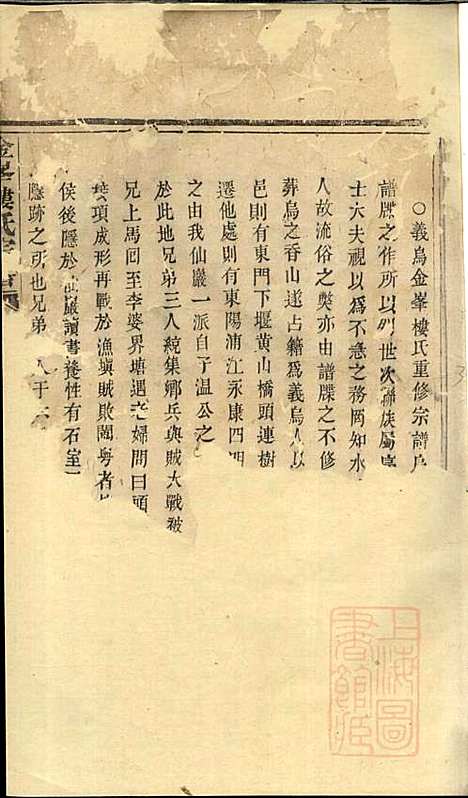 ○義烏金峯樓氏重修宗譜
譜牒之作所以別世次聯族屬
士大夫視以爲不急之務罔知水
人故流俗之獘亦由譜牒之不修
葬烏之香山遂占籍爲義烏人以
邑則有東門下堰黃山橋頭連樹
遷他處則有東陽浦江永康四明
之由我仙巖一派自予温公之
於此地兄弟三人統集鄉兵與賊大戰被
兄上馬囘至李婆界塘遇老婦問曰頭
項成形再戰於漁塡賊敗
侯後隱於仙巖讀書養性有石室
隱跡之所也兄弟 人于
金峯樓氏宗
上海圖書館藏